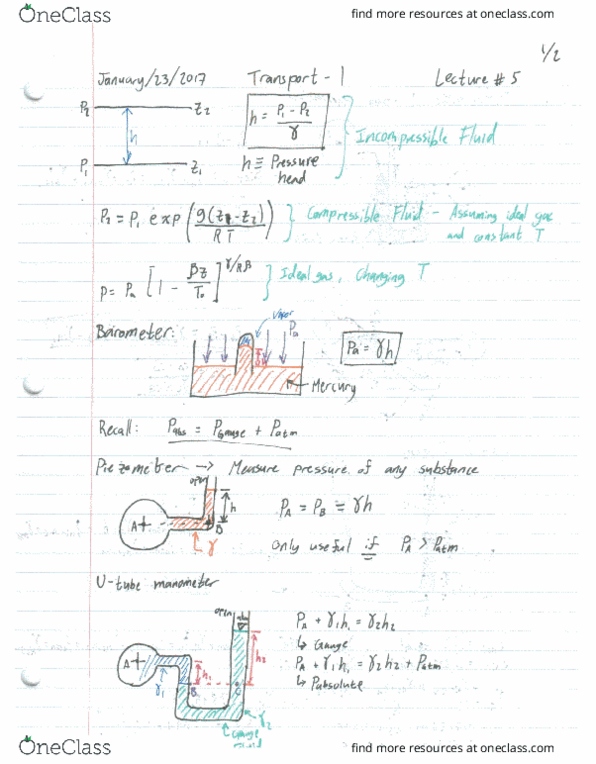 OneClass
find more resources at oneclass.com
1/2
January/23/2017 Transport - 1 Lecture # 5
P2 Z2
h
P1 Z1
h = P1 - P2 / γ
h ≡ Pressure head
} Incompressible Fluid
P2 = P1 exp (g(Z1-Z2) / RT) } Compressible Fluid - Assuming ideal gas
and constant T
P = Pa [1 - βz / To]^γ/Rβ } Ideal gas, Changing T
Barometer:
Vapor
Pa
Pa = γh
Mercury
Recall: Pabs = PGauge + Patm
Piezometer -> Measure pressure of any substance
OPEN
h
A+
B
γ
PA = PB = γh
Only useful if PA > Patm
U-tube manometer
OPEN
PA + γ1h1 = γ2h2
↳ Gauge
PA + γ1h1 = γ2h2 + Patm
↳ Pabsolute
A+
h1
h2
γ1
B
C
γ2
Gauge
OneClass
find more resources at oneclass.com